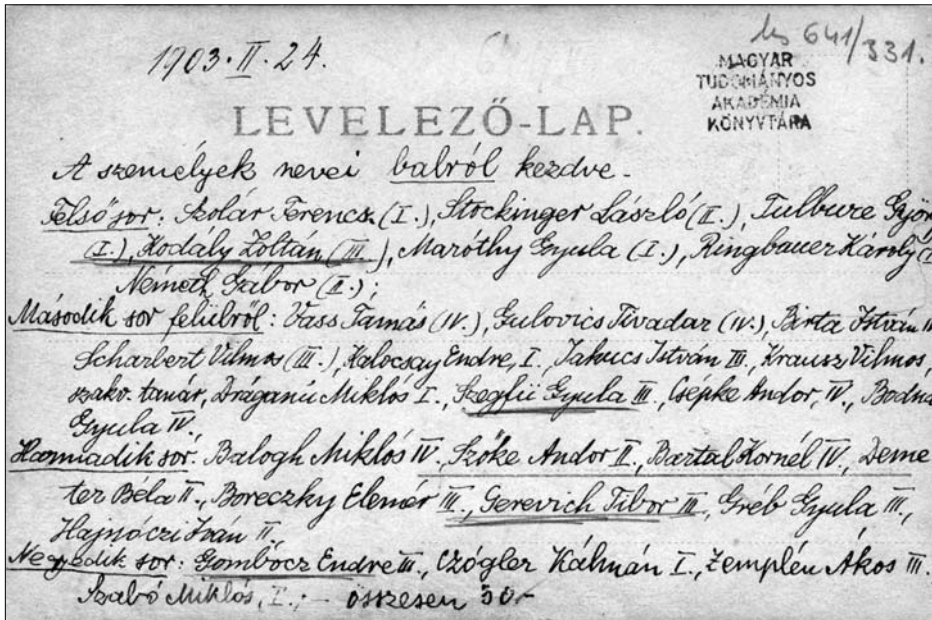 ks 641/331.
1903. II. 24.
MAGYAR
TUDOMÁNYOS
AKADÉMIA
KÖNYVTÁRA
LEVELEZŐ-LAP.
A személyek nevei balról kezdve.
Felső sor: Szolár Ferencz (I.), Stockinger László (II.), Tulbure Györ
(I.), Kodály Zoltán (III.), Maróthy Gyula (I.), Ringbauer Károly (I
Németh Gábor (II.);
Második sor felülről: Vass Tamás (IV.), Gulovics Tivadar (IV.), Birta István
Scharbert Vilmos (III.), Kalocsay Endre, I. Takucs István III., Krausz Vilmos,
szakv. tanár, Dráganú Miklós I., Szegfű Gyula III., Csepke Andor, IV., Bodna
Gyula IV.,
Harmadik sor. Balogh Miklós IV., Szőke Andor II., Bartal Kornél IV., Deme
ter Béla II., Boreczky Elemér III., Gerevich Tibor III., Gréb Gyula III.,
Hajnóczi Iván II.,
Negyedik sor: Gombocz Endre III., Czógler Kálmán I., Zemplén Ákos III.
Szabó Miklós, I.; – összesen 30.–